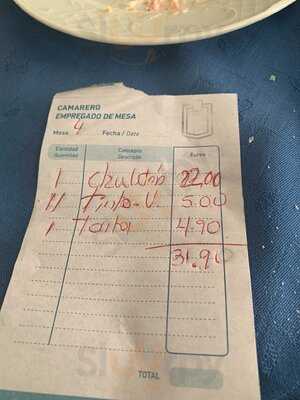 CAMARERO
EMPREGADO DE MESA
Mesa 4 Fecha / Data
Cantidad Concepto Euros
Quantidade Descrição
1 Chuletón 22.00
11 Tinto-V. 5.00
1 Tarta 4.90
31.90
TOTAL